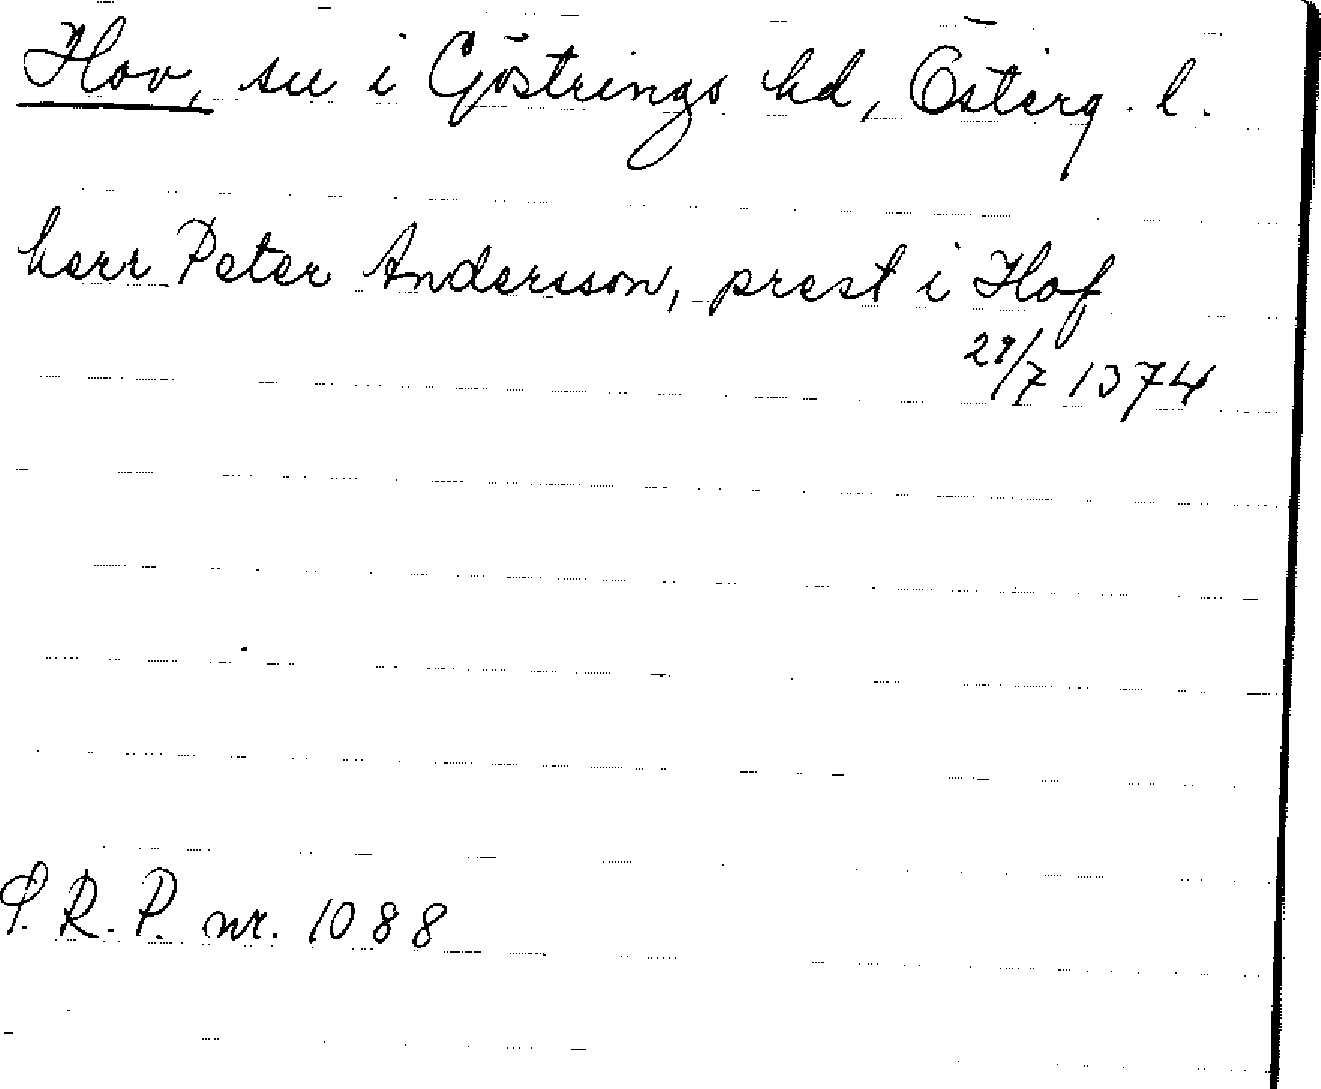 Hov, sn i Göstrings hd, Österg. l.
herr Peter Andersson, prest i Hof
29/7 1374
P. R. P. nr. 1088